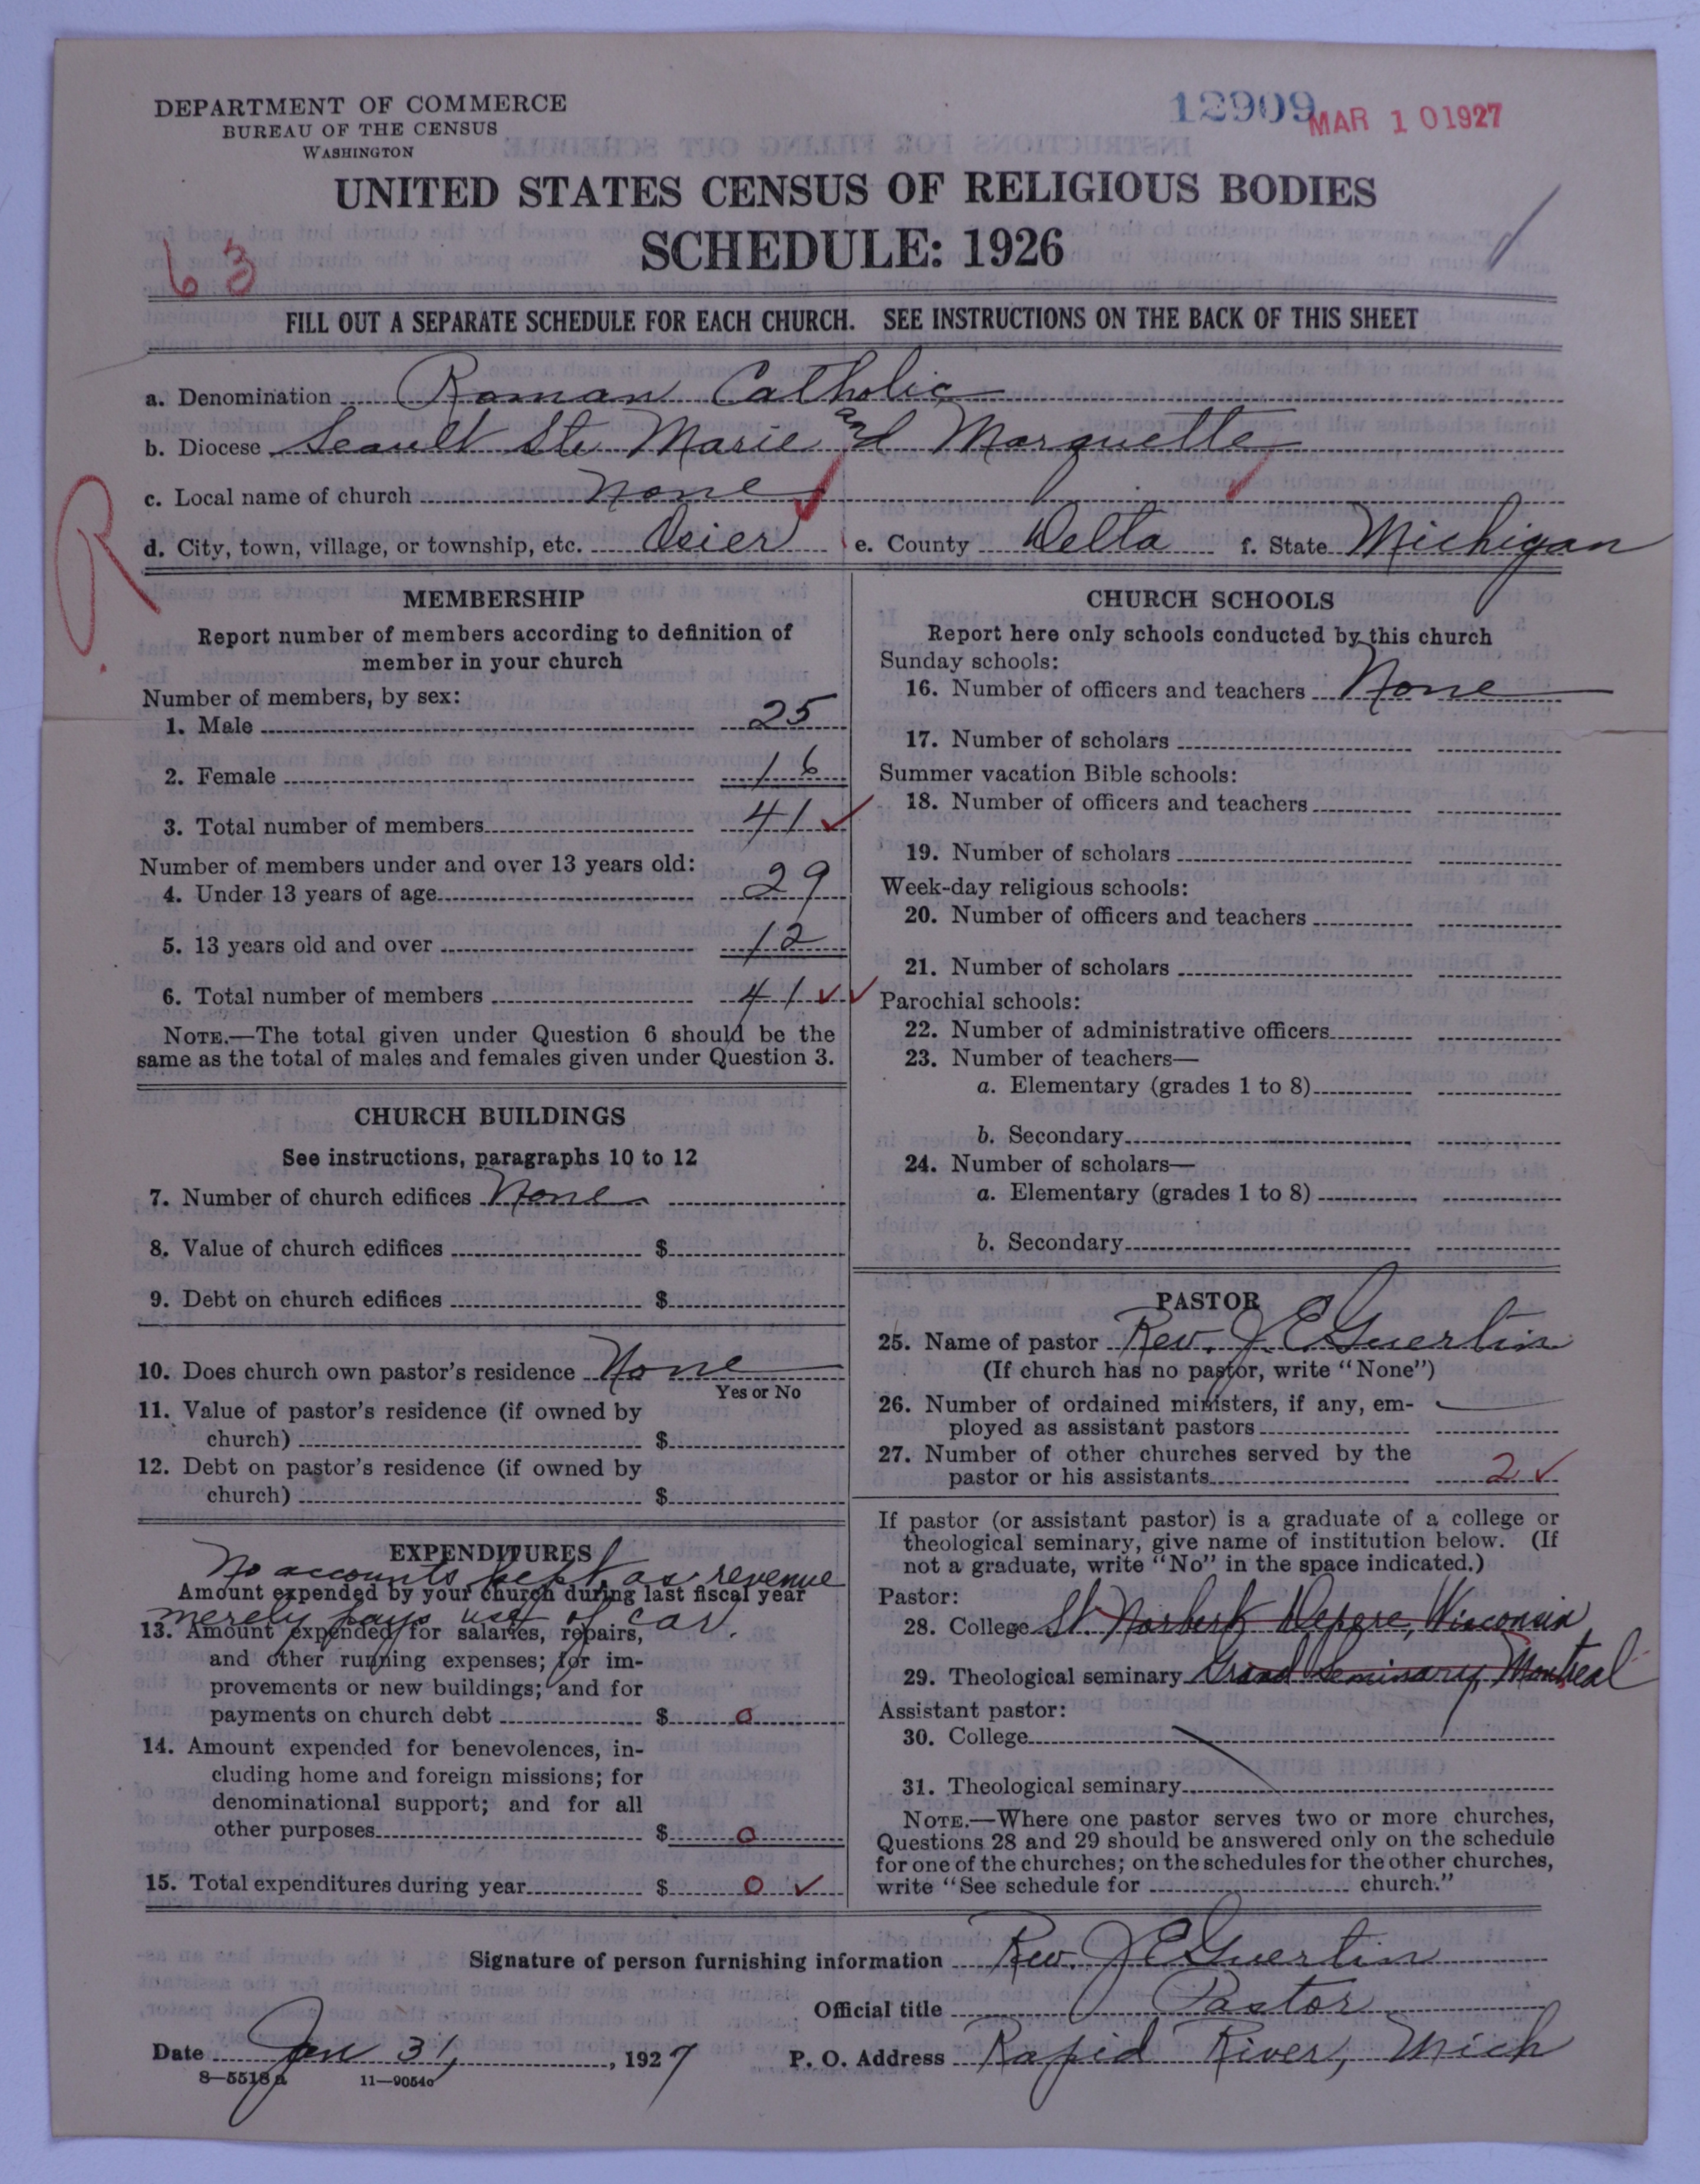 DEPARTMENT OF COMMERCE
BUREAU OF THE CENSUS
WASHINGTON
12909
MAR 10 1927
UNITED STATES CENSUS OF RELIGIOUS BODIES
SCHEDULE: 1926
63
FILL OUT A SEPARATE SCHEDULE FOR EACH CHURCH. SEE INSTRUCTIONS ON THE BACK OF THIS SHEET
a. Denomination Roman Catholic
b. Diocese Seault Ste Marie and Marquette
c. Local name of church None
R
d. City, town, village, or township, etc. Osier e. County Delta f. State Michigan
MEMBERSHIP
Report number of members according to definition of
member in your church
Number of members, by sex:
1. Male 25
2. Female 16
3. Total number of members 41 ✓
Number of members under and over 13 years old:
4. Under 13 years of age 29
5. 13 years old and over 12
6. Total number of members 41 ✓ ✓
NOTE.—The total given under Question 6 should be the
same as the total of males and females given under Question 3.
CHURCH BUILDINGS
See instructions, paragraphs 10 to 12
7. Number of church edifices None
8. Value of church edifices $
9. Debt on church edifices $
10. Does church own pastor's residence None
Yes or No
11. Value of pastor's residence (if owned by
church) $
12. Debt on pastor's residence (if owned by
church) $
EXPENDITURES
No accounts kept as revenue
Amount expended by your church during last fiscal year
merely pays use of car.
13. Amount expended for salaries, repairs,
and other running expenses; for im-
provements or new buildings; and for
payments on church debt $ 0
14. Amount expended for benevolences, in-
cluding home and foreign missions; for
denominational support; and for all
other purposes $ 0
15. Total expenditures during year $ 0 ✓
CHURCH SCHOOLS
Report here only schools conducted by this church
Sunday schools:
16. Number of officers and teachers None
17. Number of scholars
Summer vacation Bible schools:
18. Number of officers and teachers
19. Number of scholars
Week-day religious schools:
20. Number of officers and teachers
21. Number of scholars
Parochial schools:
22. Number of administrative officers
23. Number of teachers—
a. Elementary (grades 1 to 8)
b. Secondary
24. Number of scholars—
a. Elementary (grades 1 to 8)
b. Secondary
PASTOR
25. Name of pastor Rev. J. E. Guertin
(If church has no pastor, write "None")
26. Number of ordained ministers, if any, em-
ployed as assistant pastors
27. Number of other churches served by the
pastor or his assistants 2 ✓
If pastor (or assistant pastor) is a graduate of a college or
theological seminary, give name of institution below. (If
not a graduate, write "No" in the space indicated.)
Pastor:
28. College St. Norbert Depere, Wisconsin
29. Theological seminary Grand Seminary, Montreal
Assistant pastor:
30. College
31. Theological seminary
NOTE.—Where one pastor serves two or more churches,
Questions 28 and 29 should be answered only on the schedule
for one of the churches; on the schedules for the other churches,
write "See schedule for church."
Signature of person furnishing information Rev. J E Guertin
Official title Pastor
Date Jan 31, 1927 P. O. Address Rapid River, Mich
8—5518a 11—9054a